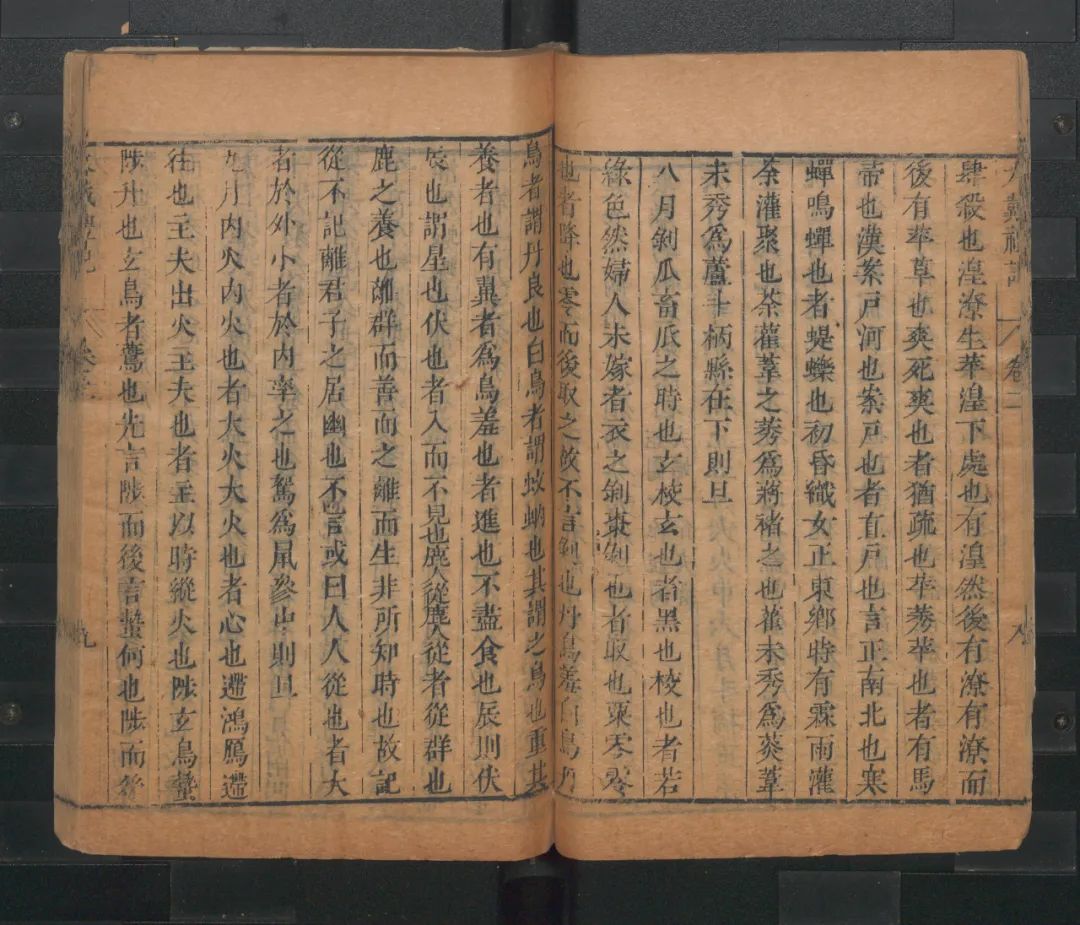 大戴禮記 卷二 八
肆殺也湟潦生苹湟下處也有湟然後有潦有潦而
後有苹草也爽死爽也者猶疏也苹莠苹也者有馬
帚也漢案戶河也案戶也者直戶也言正南北也寒
蟬鳴蟬也者蝭蠑也初昏織女正東鄉時有霖雨灌
荼灌聚也荼雚葦之莠爲蔣褚之也雚未秀爲菼葦
未秀爲蘆斗柄縣在下則旦
八月剝瓜畜瓜之時也玄校玄也者黑也校也者若
綠色然婦人未嫁者衣之剝棗剝也者取也栗零零
也者降也零而後取之故不言剝也丹鳥羞白鳥丹
鳥者謂丹良也白鳥者謂蚊蚋也其謂之鳥也重其
養者也有翼者爲鳥羞也者進也不盡食也辰則伏
辰也謂星也伏也者入而不見也鹿人從鹿人從者從群也
鹿之養也離群而善而之離而生非所知時也故記
從不記離君子之居幽也不言或曰人人從也者大
者於外小者於内率之也駕爲鼠參中則旦
九月内火内火也者大火大火也者心也遰鴻鴈遰
往也主夫出火主夫也者主以時縱火也陟玄鳥蟄
陟升也玄鳥者鷰也先言陟而後言蟄何也陟而後
大戴禮記 卷二 九